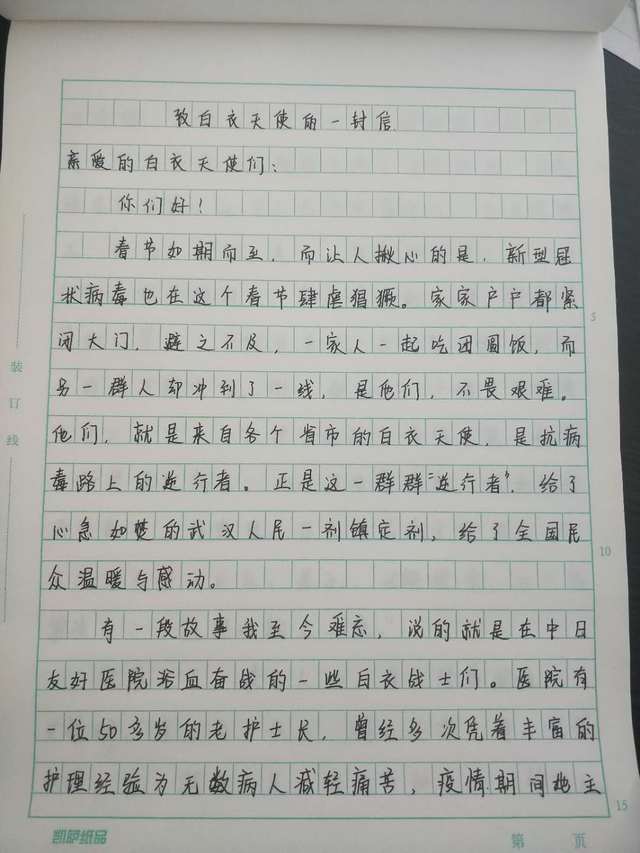 致白衣天使的一封信
亲爱的白衣天使们：
你们好！
春节如期而至，而让人揪心的是，新型冠
状病毒也在这个春节肆虐猖獗。家家户户都紧
闭大门，避之不及，一家人一起吃团圆饭，而
另一群人却冲到了一线，是他们，不畏艰难。
他们，就是来自各个省市的白衣天使，是抗病
毒路上的逆行者。正是这一群群“逆行者”，给了
心急如焚的武汉人民一剂镇定剂，给了全国民
众温暖与感动。
有一段故事我至今难忘，说的就是在中日
友好医院浴血奋战的一些白衣战士们。医院有
一位50多岁的老护士长，曾经多次凭着丰富的
护理经验为无数病人减轻痛苦，疫情期间她主
装订线
5
10
15
凯萨纸品
第 页